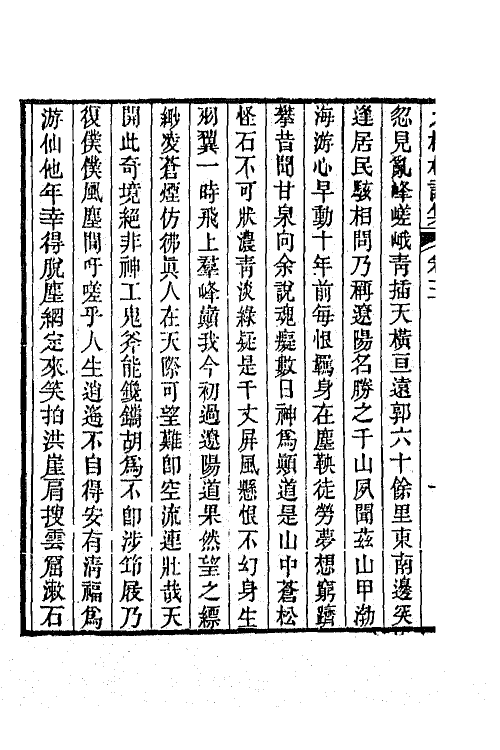 忽見亂峰嵯峨靑插天橫亘遠郭六十餘里東南邊
逢居民駭相問乃稱遼陽名勝之千山夙聞茲山甲渤
海游心早動十年前每恨羈身在塵鞅徒勞夢想窮躋
攀昔聞甘泉向余說魂癡數日神爲顚道是山中蒼松
怪石不可狀濃靑淡綠疑是千丈屏風懸恨不幻身生
羽翼一時飛上羣峰巓我今初過遼陽道果然望之縹
緲凌蒼煙仿彿眞人在天際可望難卽空流連壯哉天
開此奇境絕非神工鬼斧能鑱鐫胡爲不卽涉笻屐乃
復僕僕風塵間吁嗟乎人生逍遙不自得安有淸福爲
游仙他年幸得脫塵網定來笑拍洪崖肩搜雲窟漱石